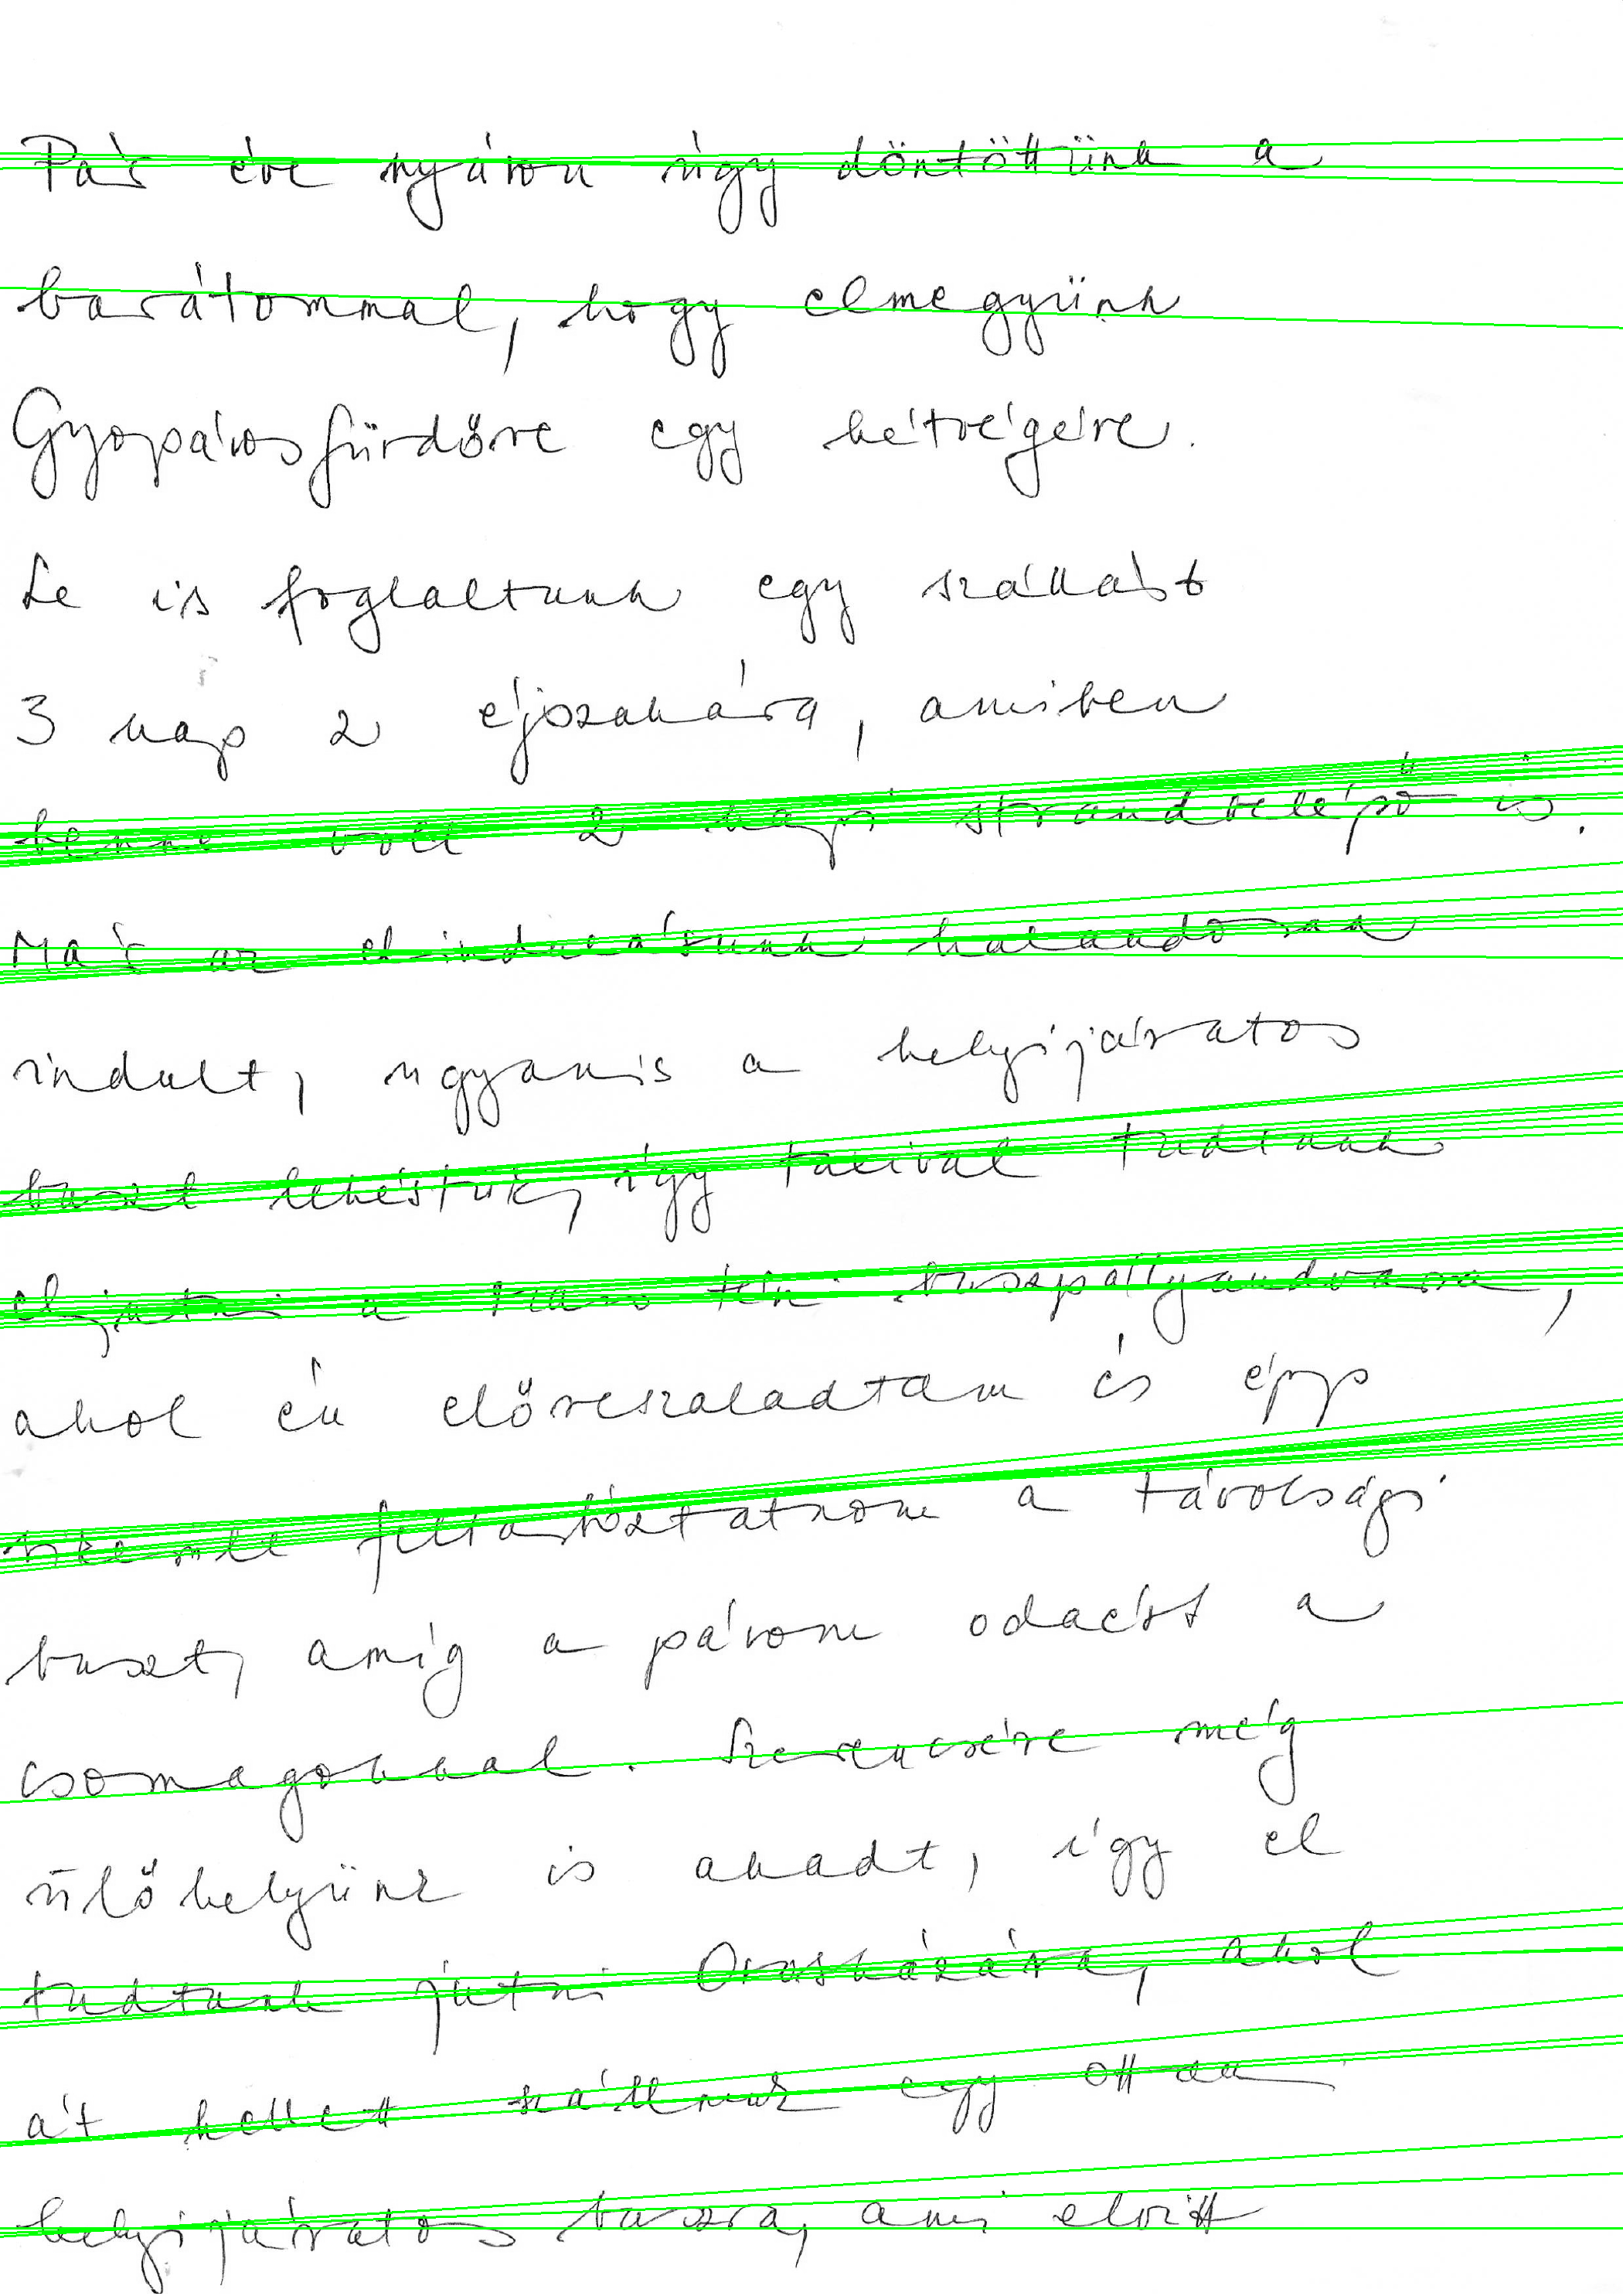 Pár éve nyáron úgy döntöttünk a
barátommal, hogy elmegyünk
Gyopárosfürdőre egy hétvégére.
Le is foglaltunk egy szállást
3 nap 2 éjszakára, amiben
benne volt 2 napi strandbelépő is.
Már az elindulásunk kalandosan
indult, ugyanis a helyijáratos
buszt lekéstük, így taxival tudtunk
eljutni a buszpályaudvarra,
ahol én előreszaladtam és épp
fel tartóztatnom a távolsági
buszt, amíg a párom odaért a
csomagokkal. Szerencsére még
ülőhelyünk is akadt, így el
tudtunk jutni Orosházára, ahol
át kellett szállnunk egy ottani
helyijáratos buszra, ami elvitt